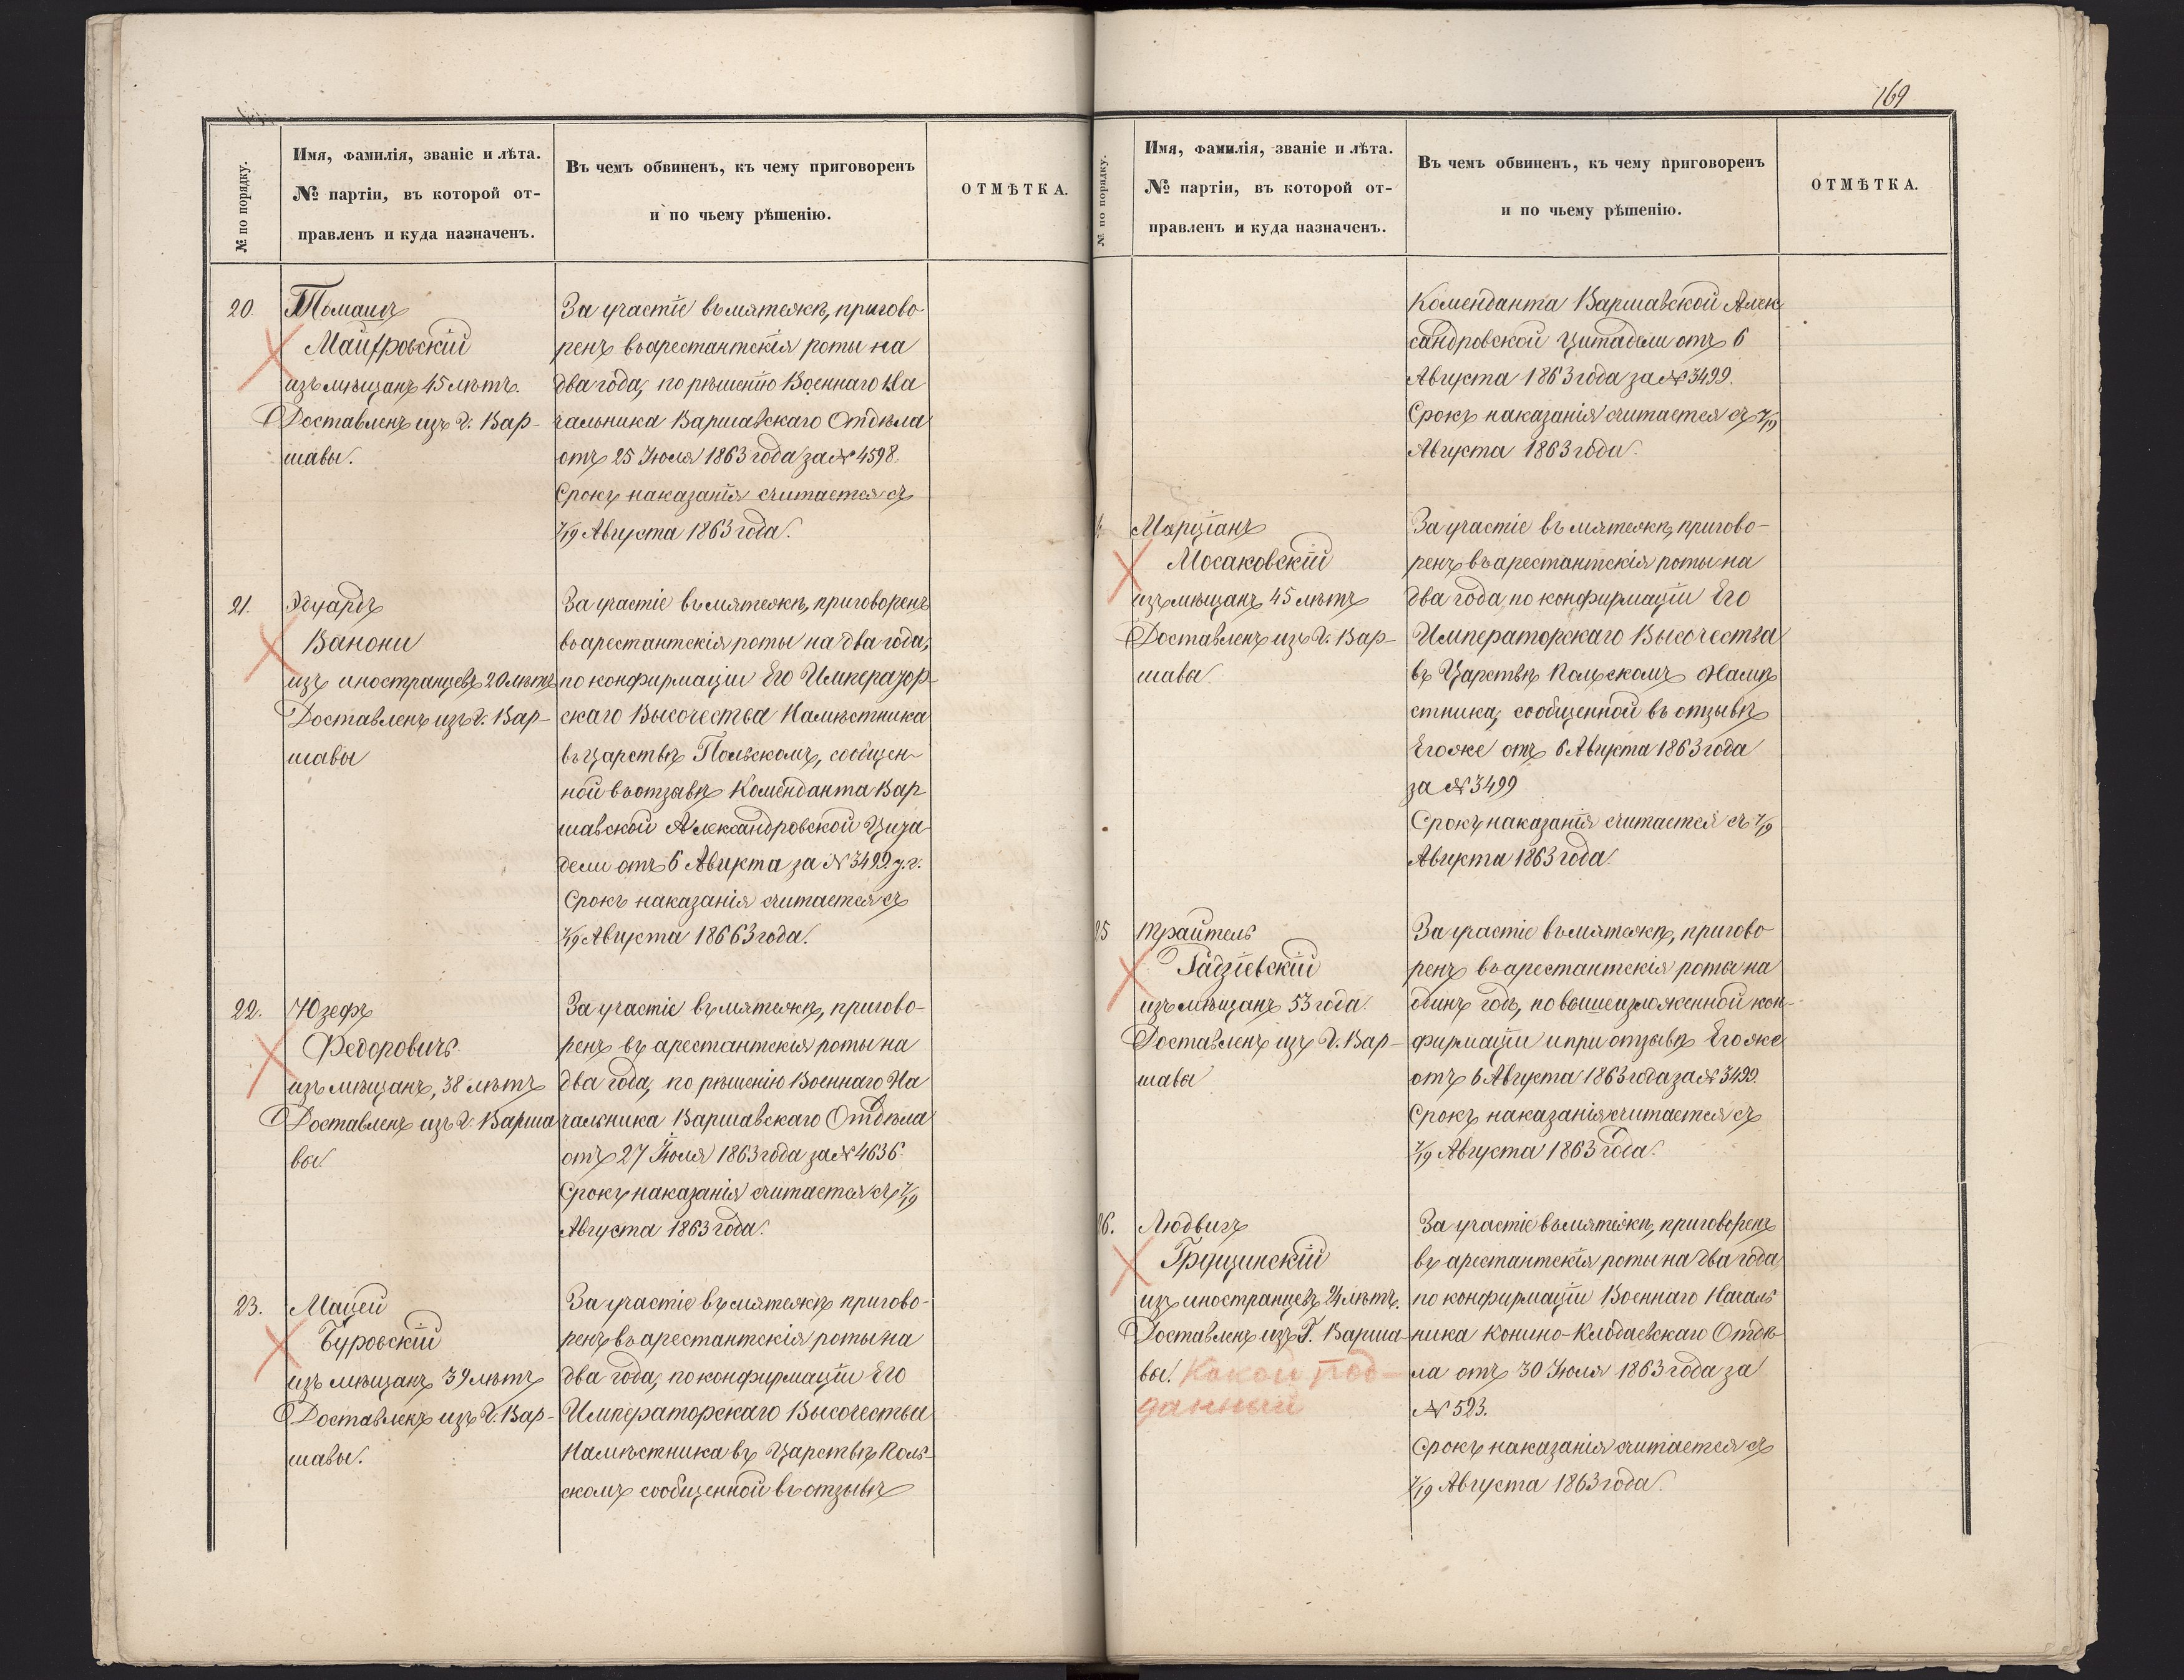 № по порядку.
Имя, фамилія, званіе и лѣта.
№ партіи, въ которой от-
правленъ и куда назначенъ.
Въ чемъ обвиненъ, къ чему приговоренъ
и по чьему рѣшенію.
ОТМѢТКА.
20.
Томашъ
Майфровскій
изъ мѣщанъ 45 лѣтъ.
Доставленъ изъ г. Вар-
шавы.
За участіе въ мятежѣ, пригово
ренъ въ арестантскія роты на
два года, по рѣшенію Военнаго На
чальника Варшавскаго Отдѣла
отъ 25 Іюля 1863 года за № 4598.
Срокъ наказанія считается съ
7/19 Августа 1863 года.
21.
Эдуардъ
Ванони
изъ иностранцевъ 20 лѣтъ
Доставленъ изъ г. Вар-
шавы
За участіе въ мятежѣ, приговоренъ
въ арестантскія роты на два года,
по конфирмаціи Его Император-
скаго Высочества Намѣстника
въ Царствѣ Польскомъ, сообщен-
ной въ отзывѣ Коменданта Вар
шавской Александровской Цита-
дели отъ 6 Августа за № 3499 т.г.
Срокъ наказанія считается съ
7/19 Августа 18663 года.
22.
Юзефъ
Федоровичъ
изъ мѣщанъ, 38 лѣтъ
Доставленъ изъ г. Варша
вы.
За участіе въ мятежѣ, пригово-
ренъ въ арестантскія роты на
два года, по рѣшенію Военнаго На
чальника Варшавскаго Отдѣла
отъ 27 Іюля 1863 года за № 4636.
Срокъ наказанія считается съ 7/19
Августа 1863 года.
23.
Мацей
Буровскій
изъ мѣщанъ 39 лѣтъ
Доставленъ изъ г. Вар-
шавы.
За участіе въ мятежѣ пригово-
ренъ въ арестантскія роты на
два года, по конфирмаціи Его
Императорскаго Высочества
Намѣстника въ Царствѣ Поль-
скомъ сообщенной въ отзывѣ
169
№ по порядку.
Имя, фамилія, званіе и лѣта.
№ партіи, въ которой от-
правленъ и куда назначенъ.
Въ чемъ обвиненъ, къ чему приговоренъ
и по чьему рѣшенію.
ОТМѢТКА.
Коменданта Варшавской Алек
сандровской Цитадели отъ 6
Августа 1863 года за № 3499.
Срокъ наказанія считается съ 7/19
Августа 1863 года.
Марціанъ
Мосаковскій
изъ мѣщанъ 45 лѣтъ
Доставленъ изъ г. Вар-
шавы.
За участіе въ мятежѣ, пригово-
ренъ въ арестантскія роты на
два года по конфирмаціи Его
Императорскаго Высочества
въ Царствѣ Польскомъ Намѣ
стника, сообщенной въ отзывѣ
Его же отъ 6 Августа 1863 года
за № 3499
Срокъ наказанія считается съ 7/19
Августа 1863 года.
25
Трайтель
Гадзіевскій
изъ мѣщанъ 53 года.
Доставленъ изъ г. Вар-
шавы
За участіе въ мятежѣ, пригово
ренъ въ арестантскія роты на
динъ годъ, по вышеизложенной кон-
фирмаціи и при отзывѣ Его же
отъ 6 Августа 1863 года за № 3499.
Срокъ наказанія считается съ
7/19 Августа 1863 года.
26.
Людвигъ
Грущинскій
изъ иностранцевъ 24 лѣтъ.
Доставленъ изъ Г. Варша-
вы. Какой под-
данный
За участіе въ мятежѣ, приговоренъ
въ арестантскія роты на два года
по конфирмаціи Военнаго Началь
ника Конино-Клодаевскаго Отдѣ-
ла отъ 30 Іюля 1863 года за
№ 523.
Срокъ наказанія считается съ
7/19 Августа 1863 года.